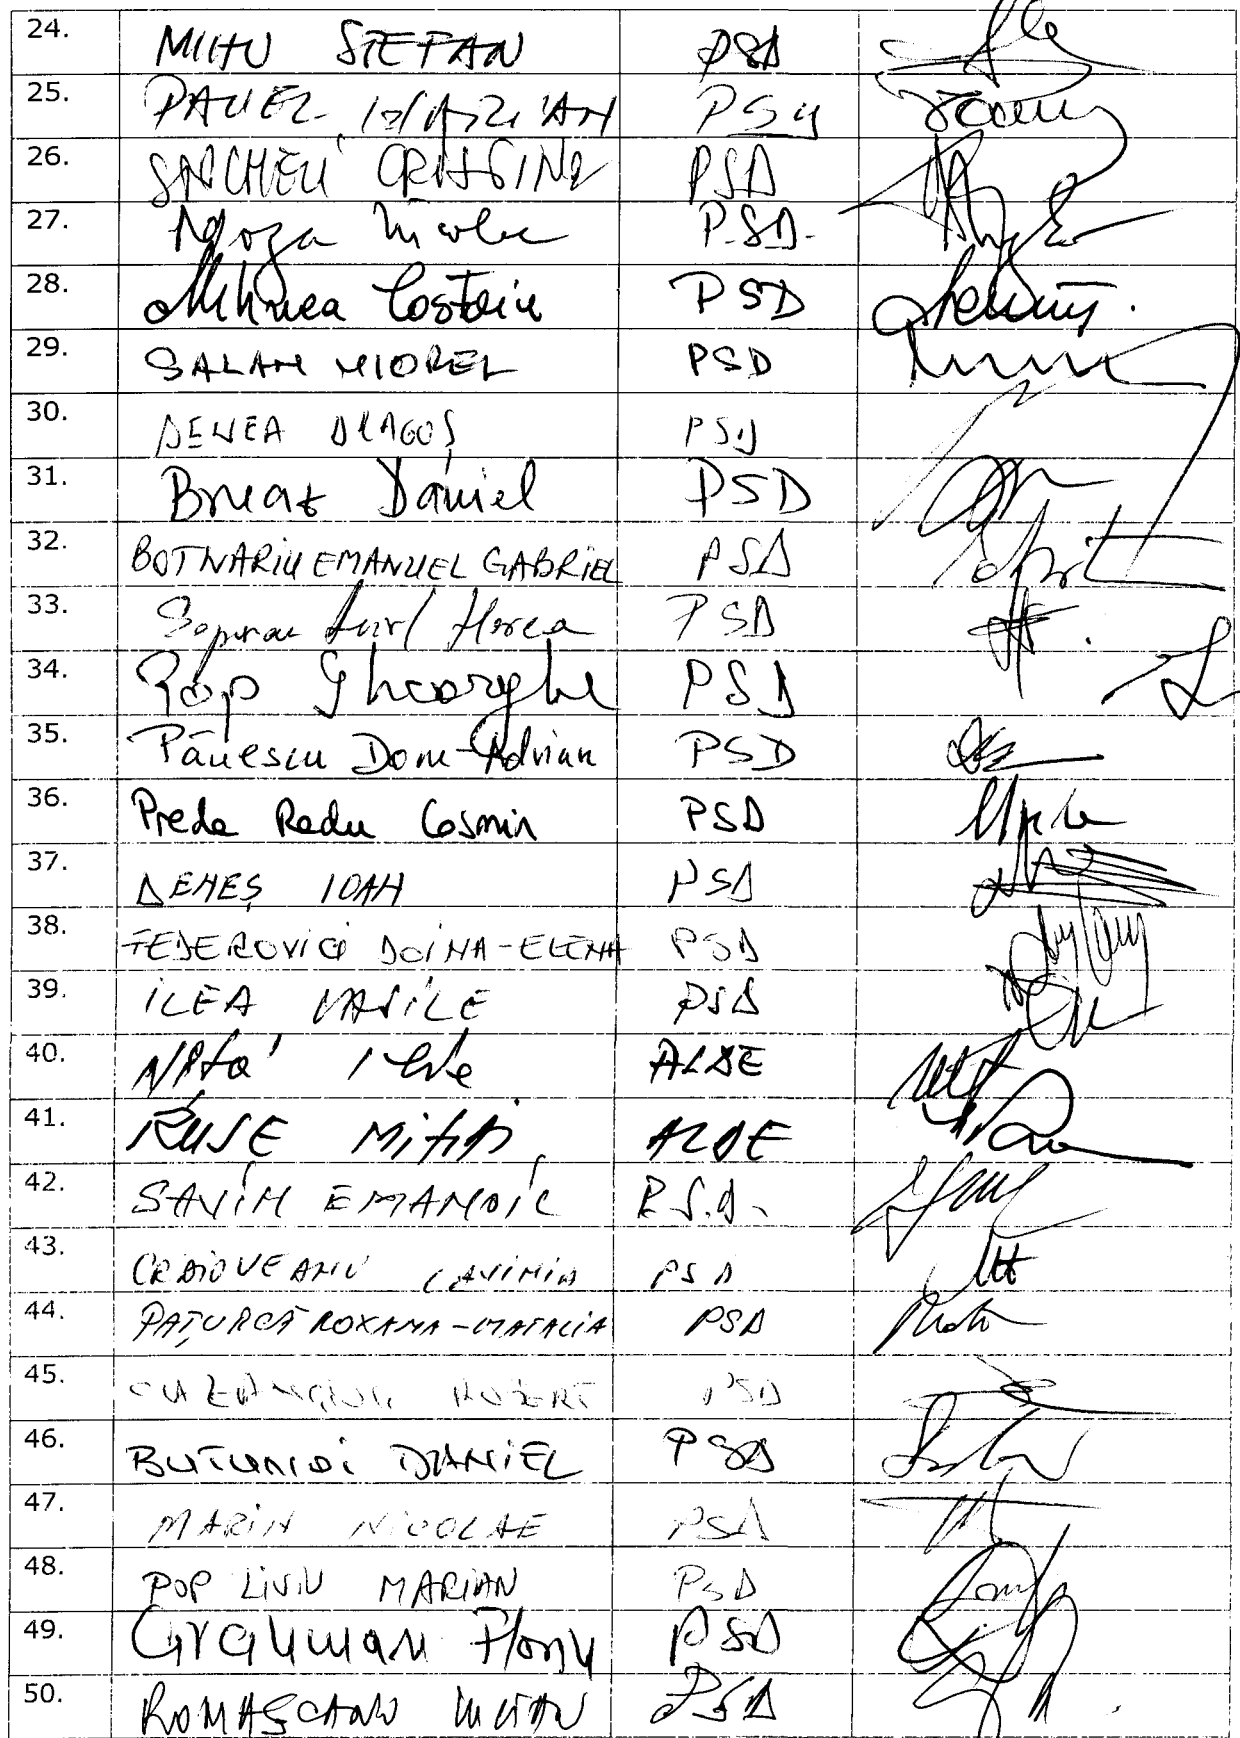 24. MIHU STEFAN PSD
25. PAVEL PSD
26. PSD
27. Moga Nicolae P.SD.
28. Mihnea Costoiu PSD
29. SALAN VIOREL PSD
30. BENEA DRAGOȘ PSD
31. Breaz Daniel PSD
32. BOTNARIU EMANUEL GABRIEL PSD
33. Horea PSD
34. Pop Gheorghe PSD
35. Pănescu Doru-Adrian PSD
36. Preda Radu Cosmin PSD
37. DENEȘ IOAN PSD
38. FEDEROVICI DOINA-ELENA PSD
39. ILEA VASILE PSD
40. Niță Ilie ALDE
41. RUSE MIHAI ALDE
42. SAVIN EMANOIL P.S.D.
43. CRAIOVEANU LAVINIA PSD
44. PAȚURCĂ ROXANA-NATALIA PSD
45. ROBERT PSD
46. BUTUNOI DANIEL PSD
47. MARIN NICOLAE PSD
48. POP LIVIU MARIAN PSD
49. PSD
50. ROMAȘCANU LUCIAN PSD